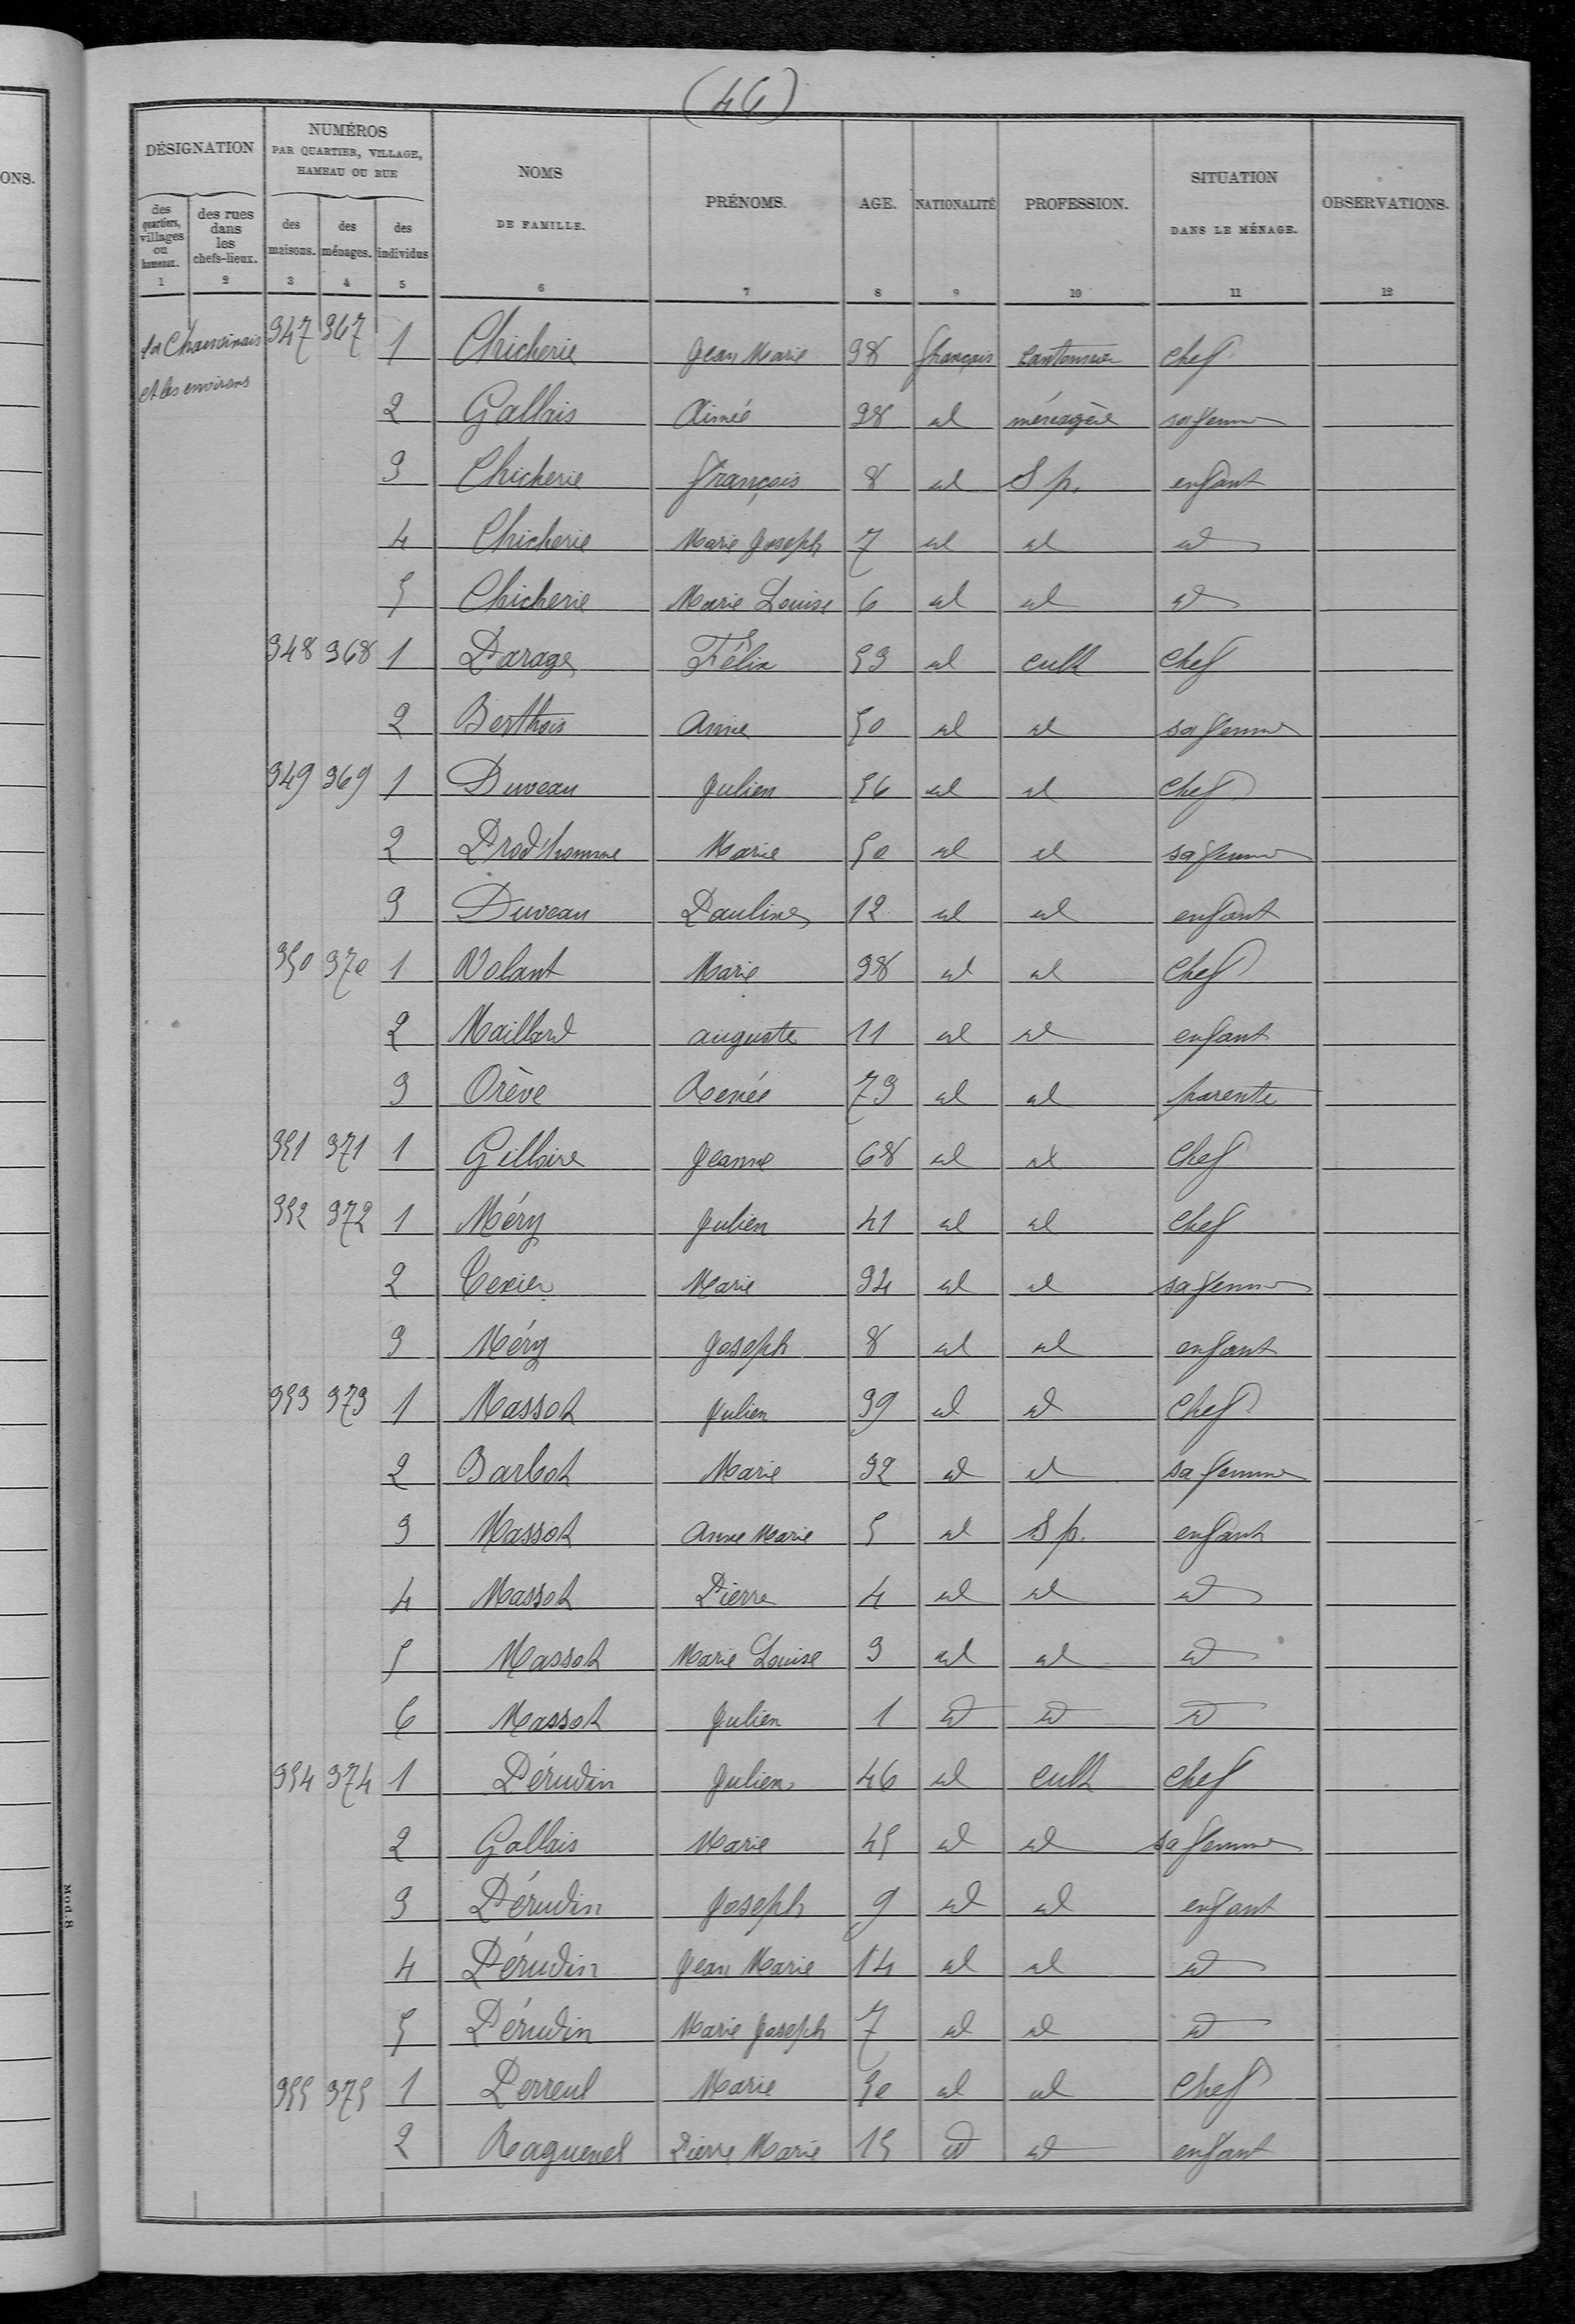 (46)
ONS.
DÉSIGNATION
NUMÉROS
PAR QUARTIER, VILLAGE,
HAMEAU OU RUE
NOMS
DE FAMILLE.
PRÉNOMS.
AGE.
NATIONALITÉ
PROFESSION.
SITUATION
DANS LE MÉNAGE.
OBSERVATIONS.
des quartiers, villages ou hameaux.
des rues dans les chefs-lieux.
des maisons.
des ménages.
des individus
1 2 3 4 5 6 7 8 9 10 11 12
la 347 367 1 Chicherie Jean Marie 38 français Cantonnier chef
et les environs
2 Gallais Aimée 38 id ménagère sa femme
3 Chicherie François 8 id S p. enfant
4 Chicherie Marie Joseph 7 id id id
5 Chicherie Marie Louise 6 id id id
348 368 1 Parage Félix 53 id cult chef
2 Berthois Anne 50 id id sa femme
349 369 1 Duveau Julien 56 id id chef
2 Prod'homme Marie 50 id id sa femme
3 Duveau Pauline 12 id id enfant
350 370 1 Volant Marie 38 id id chef
2 Maillard auguste 11 id id enfant
3 Orève Renée 73 id id parente
351 371 1 Gilloire Jeanne 68 id id chef
352 372 1 Méry Julien 41 id id chef
2 Texier Marie 34 id id sa femme
3 Méry Joseph 8 id id enfant
353 373 1 Massot Julien 39 id id chef
2 Barbot Marie 32 id id sa femme
3 Massot Anne Marie 5 id S p. enfant
4 Massot Pierre 4 id id id
5 Massot Marie Louise 3 id id id
6 Massot Julien 1 id id id
354 374 1 Pérudin Julien 46 id cult chef
2 Gallais Marie 45 id id sa femme
3 Pérudin Joseph 9 id id enfant
4 Pérudin Jean Marie 14 id id id
5 Pérudin Marie Joseph 7 id id id
355 375 1 Perreul Marie 50 id id chef
2 Raguenel Pierre Marie 15 id id enfant
Mod. 8